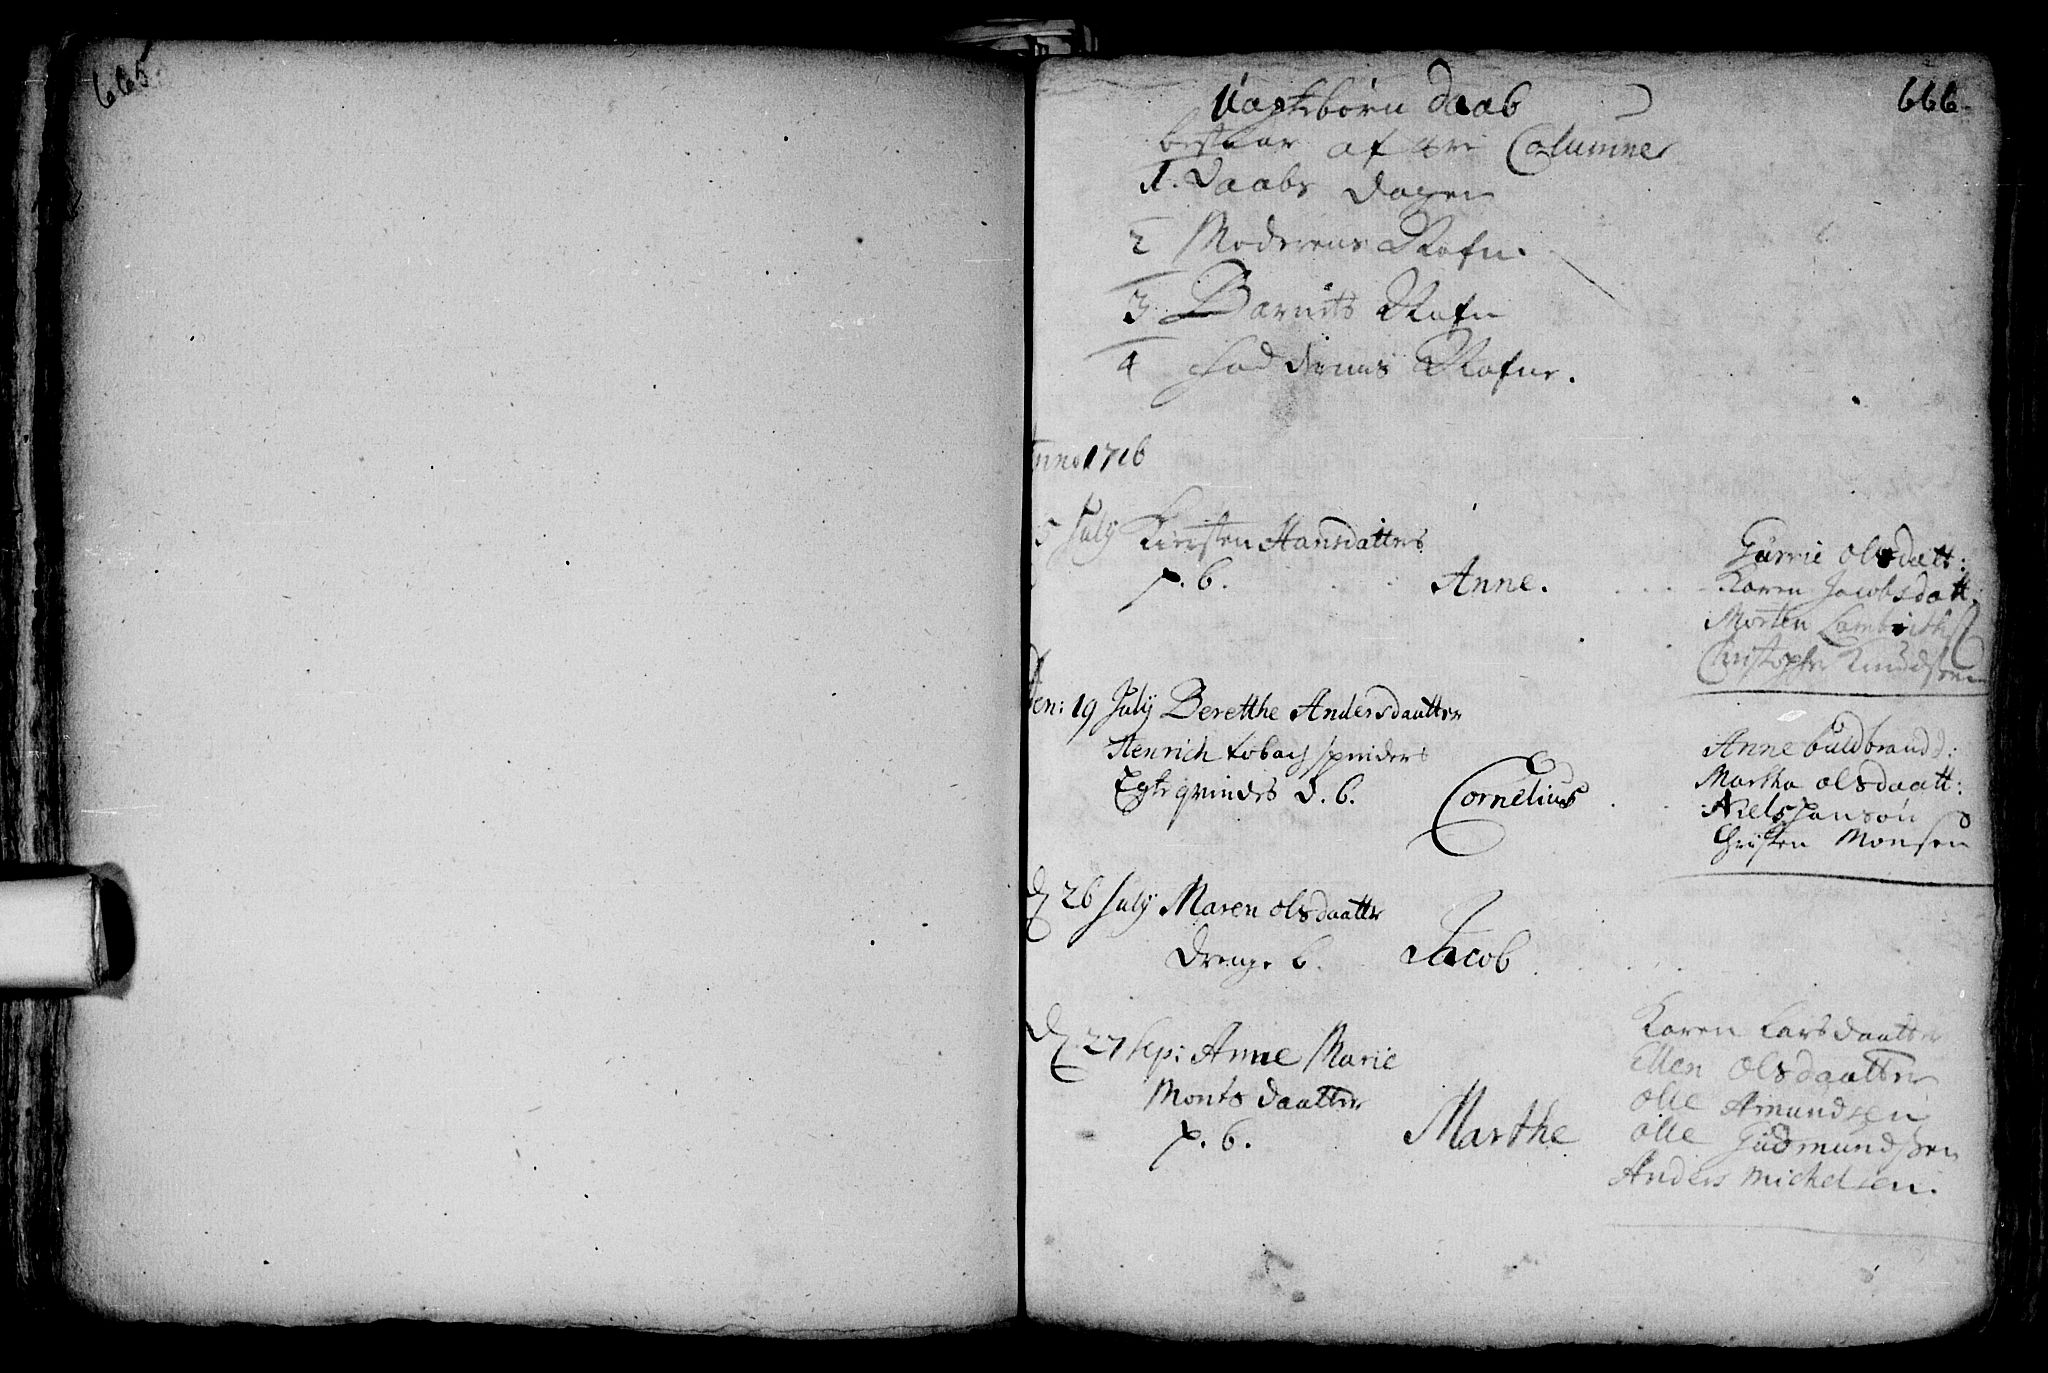 665.
666.
Uægtebørn Daab
bestaar af tre Columner
1. Daabs Dagen
2 Moderens Nafn.
3. Barnets Nafn
4 Faddernes Nafne.
Anno 1716
5 July Kirsten Hansdatters
p. b. Anne.
Gurrie Olsdatt:
Karen Jacobsdatt:
Morten
Christopher Knudsen
Den: 19 July Beretthe Andersdaatter
Henrich tobach spinders
Egte qvindes d. b. Cornelius
Anne Guldbrandd:
Martha Olsdaatt:
Niels Jansøn
Christen Monsen
D 26 July Maren Olsdaatter
Drenge b. Jacob
D. 27 Sep: Anne Marie
Monts daatter
p. b. Marthe
Karen Larsdaatter
Ellen Olsdaatter
Olle Amundsen
Olle Gudmundsen
Anders Michelsen.